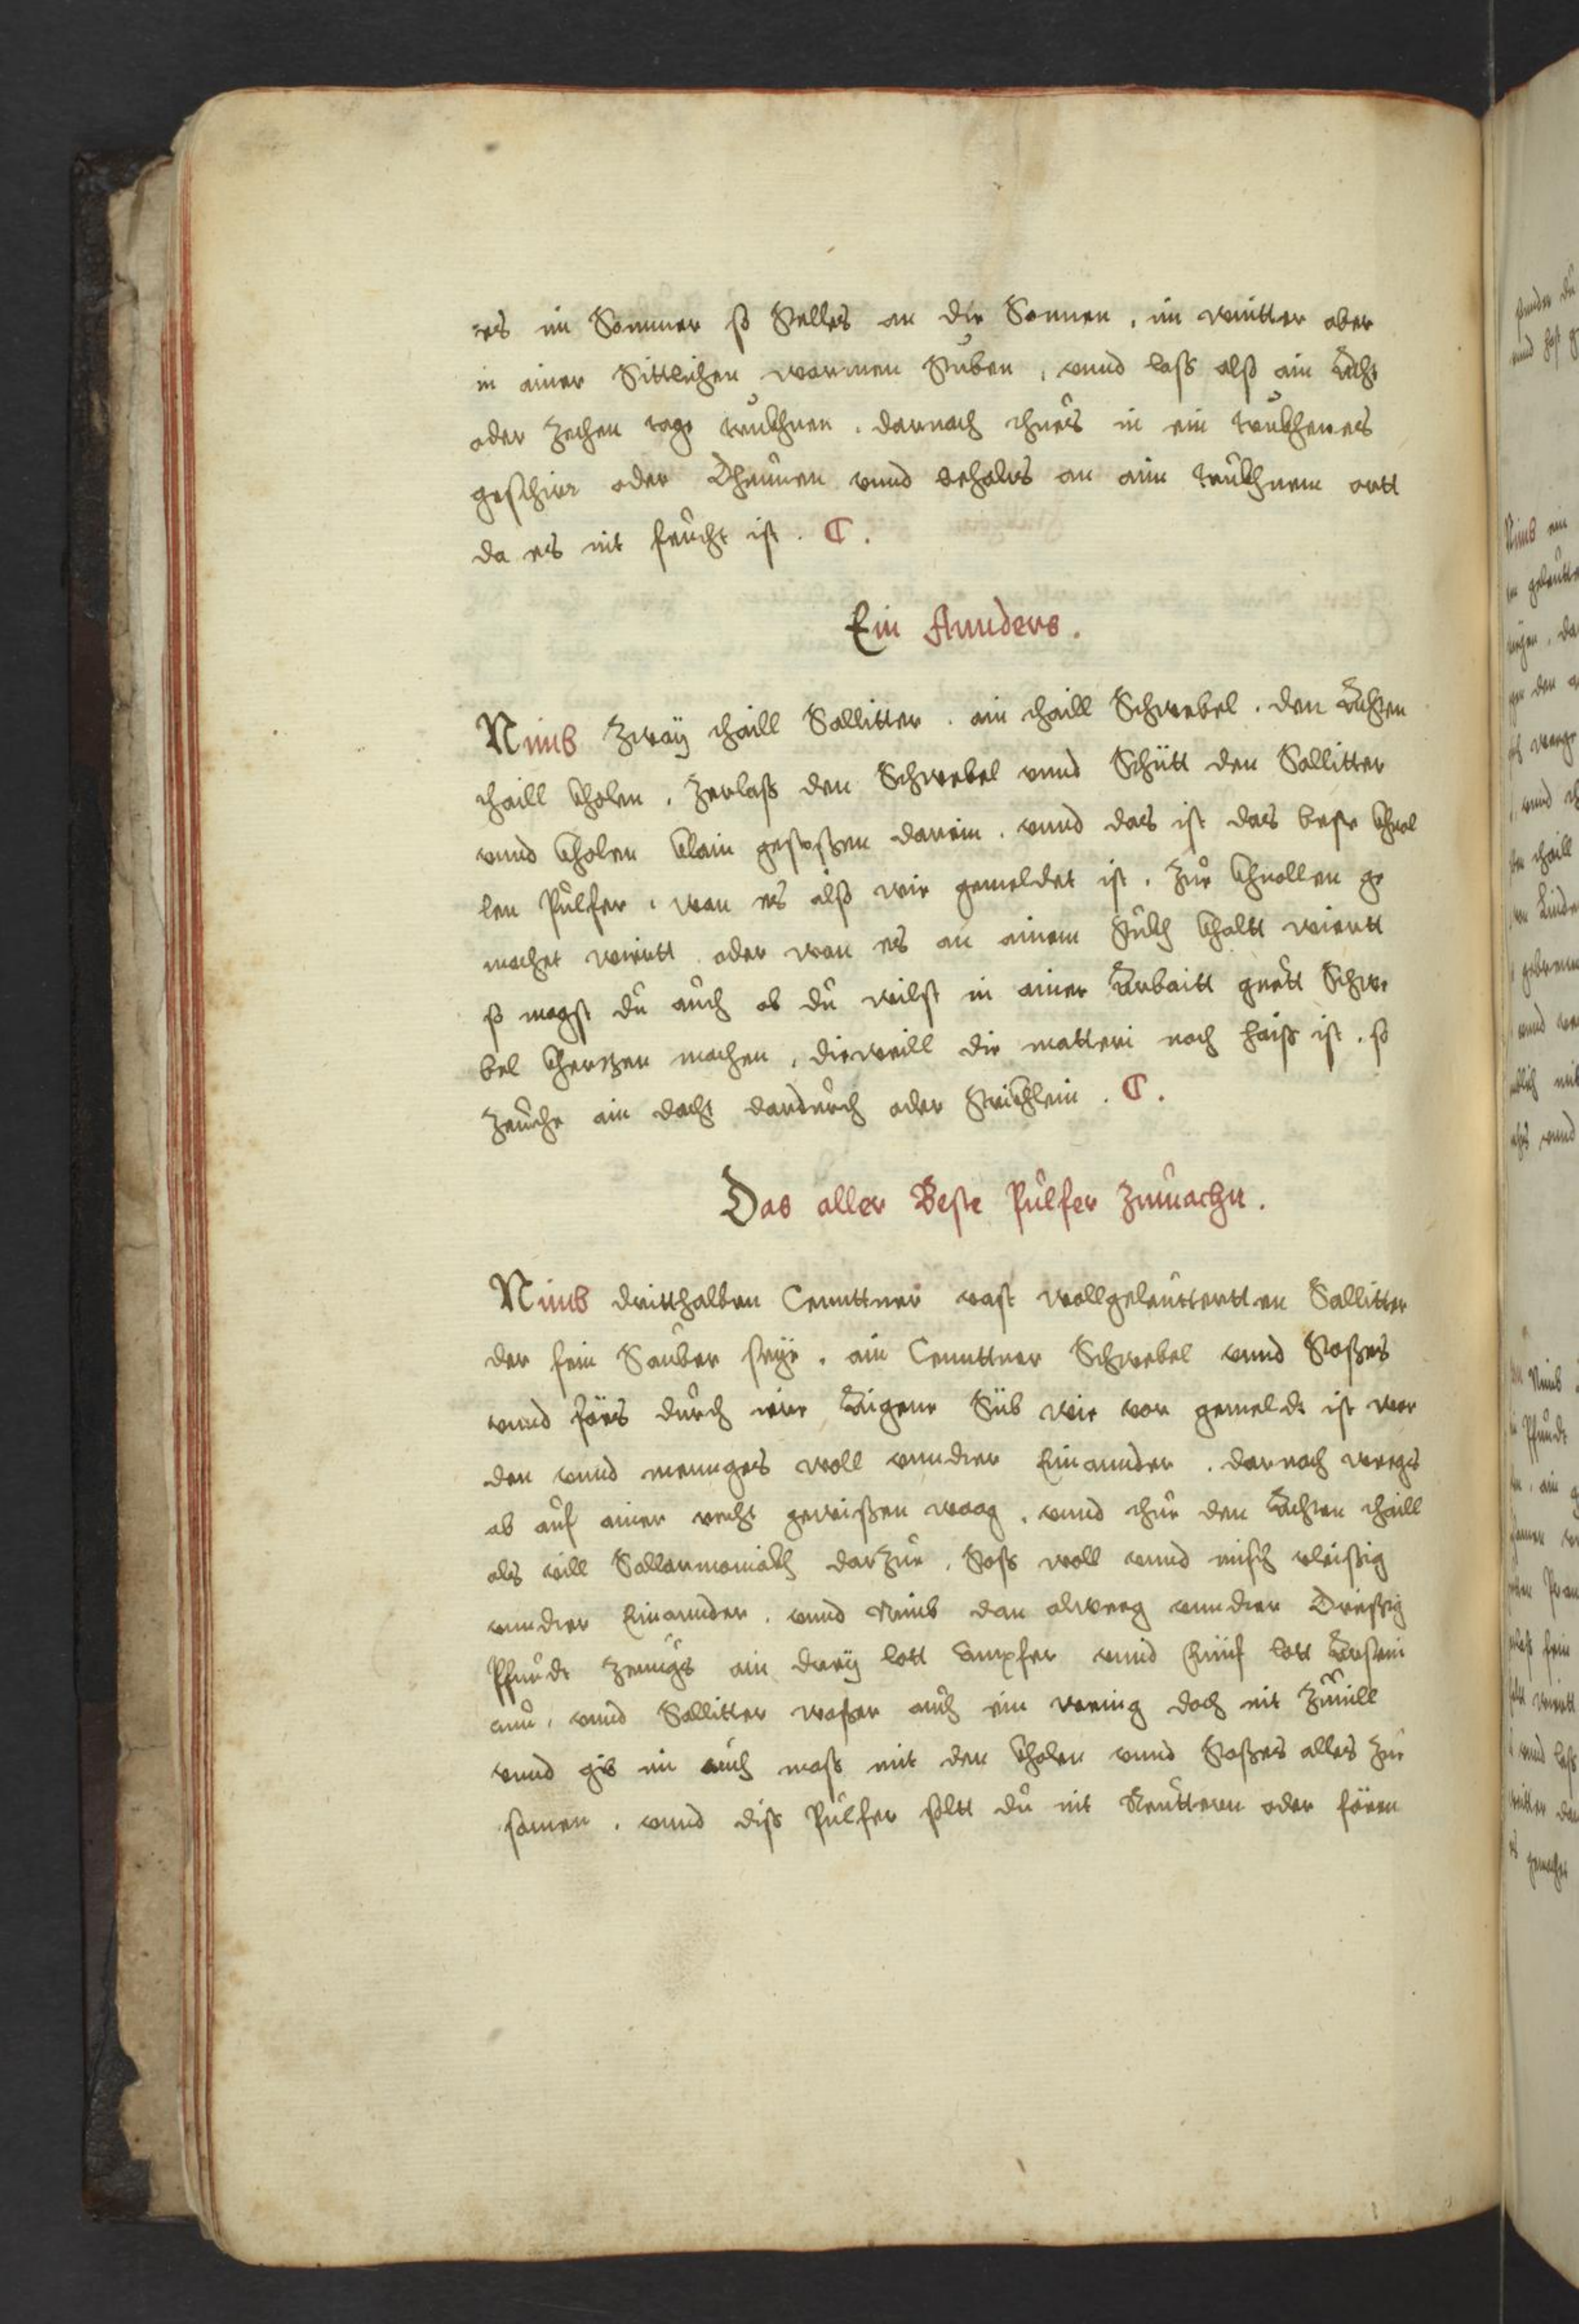 es im Sommer so Stelles an die Sonnen, im wintter aber
in ainer Sittlichen warmen Stuben, vnnd lass alss ain Acht
oder zechen tage trückhnen. darnach thues in ein trückhenes
geschirr oder Thunnen vnnd behalts an aim trückhnem ortt
da es nit feücht ist.
Ein Annders.
Nimb zway thaill Sallitter. ain thaill Schwebel. den Achten
thaill kholen, zerlass den Schwebel vnnd Schütt den Sallitter
vnnd kholen klain gestossen darein. vnnd das ist das beste khnol
len Pulfer, wan es alss wie gemeldet ist, zue khnollen ge
machet wirtt oder wan es an ainem stuckh khaltt wiertt
so magst du auch ob du wilst in ainer Arbaitt guett Schwe
bel khertzen machen, dieweill die matteri noch haiss ist, so
zeuche ain dacht dardurch oder Strickhlein.
Das aller Beste Pulfer zumachn.
Nimb dritthalben Centtner vast wollgeleüttertten Sallitter
der fein Sauber seye, ain Centtner Schwebel vnnd Stosses
vnnd färs durch ein Aigene Süb wie vor gemeldt ist wor
den vnnd mennges woll vnnder Einannder. darnach wegs
ab auf ainer recht gewissen waag, vnnd thue den Achten thaill
als vill Sallarmoniakh darzue, Stoss woll vnnd misch vleissig
vnnder Einannder. vnnd Nimb dan alweeg vnnder Dreissig
Pfundt zeugs ain drey lott Campfer vnnd Fünf lott Arseni
cum, vnnd Sallitter wasser auch ein wenig doch nit zuuill
vnnd gib im auch mass mit den kholen vnnd Stosses alles zue
samen, vnnd diss Pulfer soltt du nit Reüttern oder fären